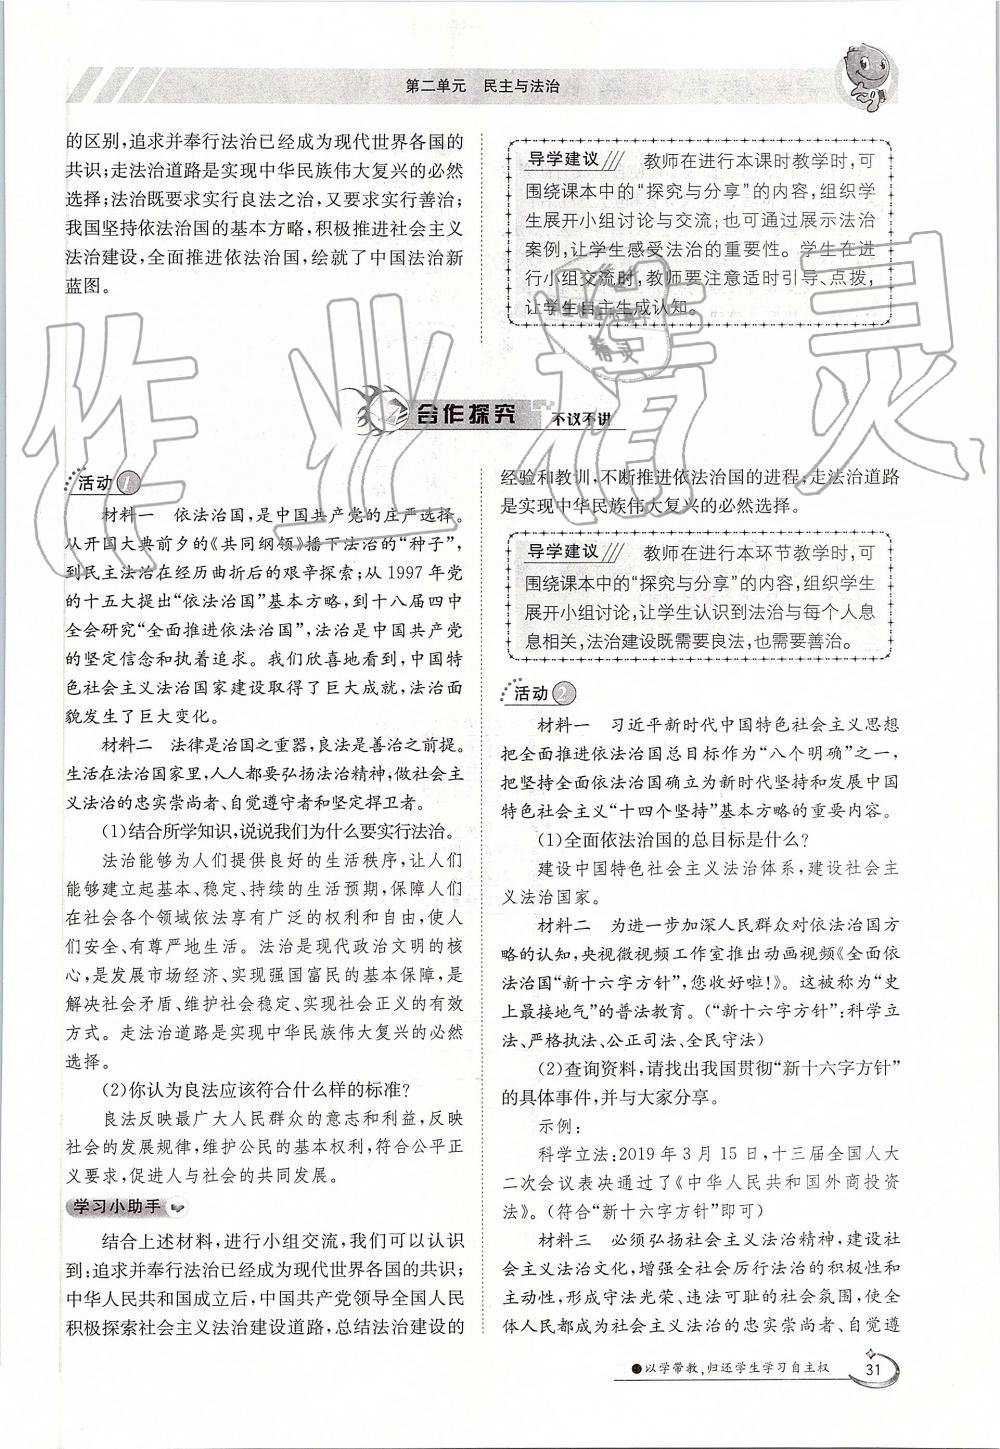 第二单元 民主与法治
的区别,追求并奉行法治已经成为现代世界各国的
共识;走法治道路是实现中华民族伟大复兴的必然
选择;法治既要求实行良法之治,又要求实行善治;
我国坚持依法治国的基本方略,积极推进社会主义
法治建设,全面推进依法治国,绘就了中国法治新
蓝图。
导学建议 教师在进行本课时教学时,可
围绕课本中的“探究与分享”的内容,组织学
生展开小组讨论与交流;也可通过展示法治
案例,让学生感受法治的重要性。学生在进
行小组交流时,教师要注意适时引导、点拨,
让学生自主生成认知。
合作探究 不议不讲
活动1
材料一 依法治国,是中国共产党的庄严选择。
从开国大典前夕的《共同纲领》播下法治的“种子”,
到民主法治在经历曲折后的艰辛探索;从1997年党
的十五大提出“依法治国”基本方略,到十八届四中
全会研究“全面推进依法治国”,法治是中国共产党
的坚定信念和执着追求。我们欣喜地看到,中国特
色社会主义法治国家建设取得了巨大成就,法治面
貌发生了巨大变化。
材料二 法律是治国之重器,良法是善治之前提。
生活在法治国家里,人人都要弘扬法治精神,做社会主
义法治的忠实崇尚者、自觉遵守者和坚定捍卫者。
(1)结合所学知识,说说我们为什么要实行法治。
法治能够为人们提供良好的生活秩序,让人们
能够建立起基本、稳定、持续的生活预期,保障人们
在社会各个领域依法享有广泛的权利和自由,使人
们安全、有尊严地生活。法治是现代政治文明的核
心,是发展市场经济、实现强国富民的基本保障,是
解决社会矛盾、维护社会稳定、实现社会正义的有效
方式。走法治道路是实现中华民族伟大复兴的必然
选择。
(2)你认为良法应该符合什么样的标准?
良法反映最广大人民群众的意志和利益,反映
社会的发展规律,维护公民的基本权利,符合公平正
义要求,促进人与社会的共同发展。
学习小助手
结合上述材料,进行小组交流,我们可以认识
到:追求并奉行法治已经成为现代世界各国的共识;
中华人民共和国成立后,中国共产党领导全国人民
积极探索社会主义法治建设道路,总结法治建设的
经验和教训,不断推进依法治国的进程,走法治道路
是实现中华民族伟大复兴的必然选择。
导学建议 教师在进行本环节教学时,可
围绕课本中的“探究与分享”的内容,组织学生
展开小组讨论,让学生认识到法治与每个人息
息相关,法治建设既需要良法,也需要善治。
活动2
材料一 习近平新时代中国特色社会主义思想
把全面推进依法治国总目标作为“八个明确”之一,
把坚持全面依法治国确立为新时代坚持和发展中国
特色社会主义“十四个坚持”基本方略的重要内容。
(1)全面依法治国的总目标是什么?
建设中国特色社会主义法治体系,建设社会主
义法治国家。
材料二 为进一步加深人民群众对依法治国方
略的认知,央视微视频工作室推出动画视频《全面依
法治国“新十六字方针”,您收好啦!》。这被称为“史
上最接地气”的普法教育。(“新十六字方针”:科学立
法、严格执法、公正司法、全民守法)
(2)查询资料,请找出我国贯彻“新十六字方针”
的具体事件,并与大家分享。
示例:
科学立法:2019年3月15日,十三届全国人大
二次会议表决通过了《中华人民共和国外商投资
法》。(符合“新十六字方针”即可)
材料三 必须弘扬社会主义法治精神,建设社
会主义法治文化,增强全社会厉行法治的积极性和
主动性,形成守法光荣、违法可耻的社会氛围,使全
体人民都成为社会主义法治的忠实崇尚者、自觉遵
●以学带教,归还学生学习自主权 31
作业精灵